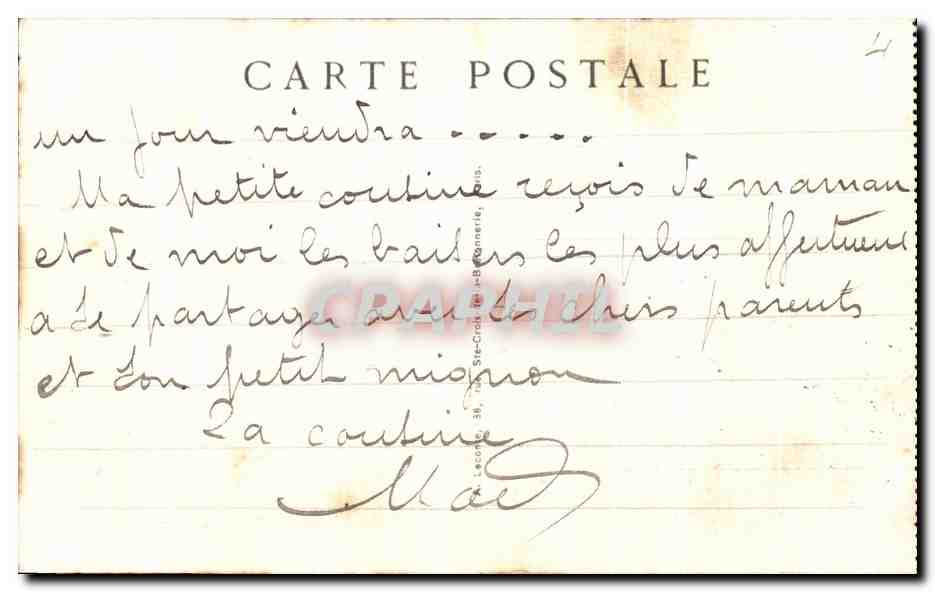 4
CARTE POSTALE
un jour viendra . . . . .
Ma petite cousine reçois de maman
et de moi les baisers les plus affectueux
a te partager avec tes chers parents
et ton petit mignon
Ta cousine
A. Leconte, 38, rue Ste-Croix-de-la-Bretonnerie, Paris.
CPAPHIL